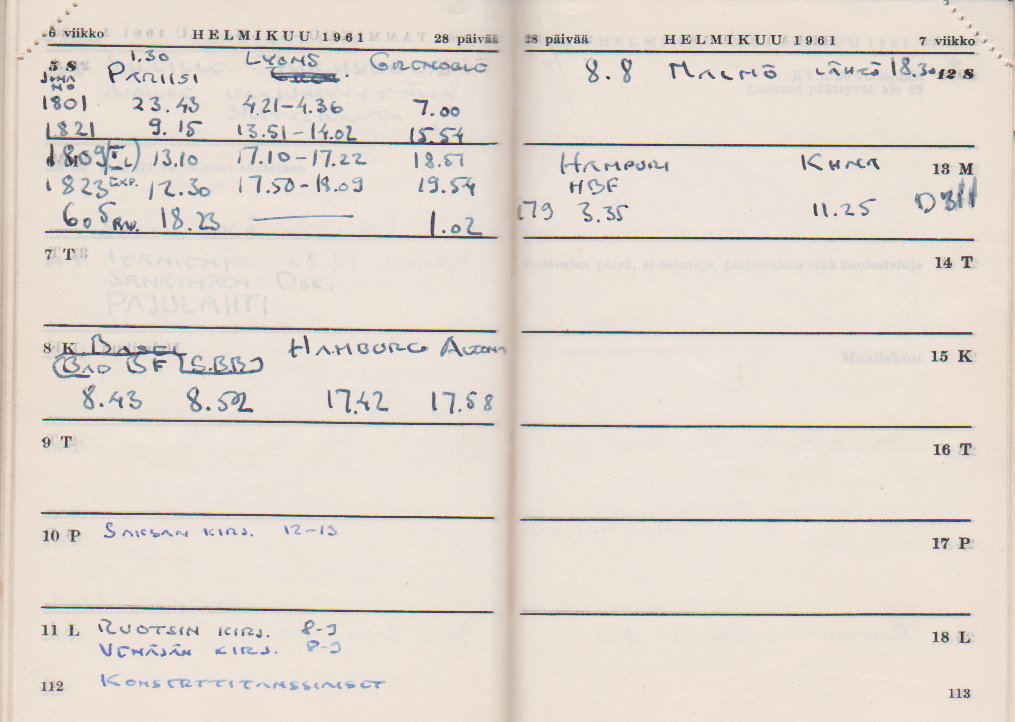 6 viikko HELMIKUU 1961 28 päivää
5 S 1.30
JUNA PARIISI LYONS GRENOBLE
NO
1801 23.43 4.21-4.36 7.00
1821 9.15 13.51-14.02 15.54
6 M 1809 13.10 17.10-17.22 18.51
1823 EXP. 12.30 17.50-18.09 19.54
605 18.23 1.02
7 T
8 K BASEL HAMBURG ALTONA
(BAD BF (S.BB)
8.43 8.52 17.42 17.58
9 T
10 P SAKSAN KIRJ. 12-13
11 L RUOTSIN KIRJ. 8-9
VENÄJÄN KIRJ. 8-9
112 KONSERTTITANSSIAISET
28 päivää HELMIKUU 1961 7 viikko
8.8 MALMÖ LÄHTÖ 18.30 12 S
HAMPURI KHNA 13 M
HBF
179 3.35 11.25 D 311
14 T
15 K
16 T
17 P
18 L
113